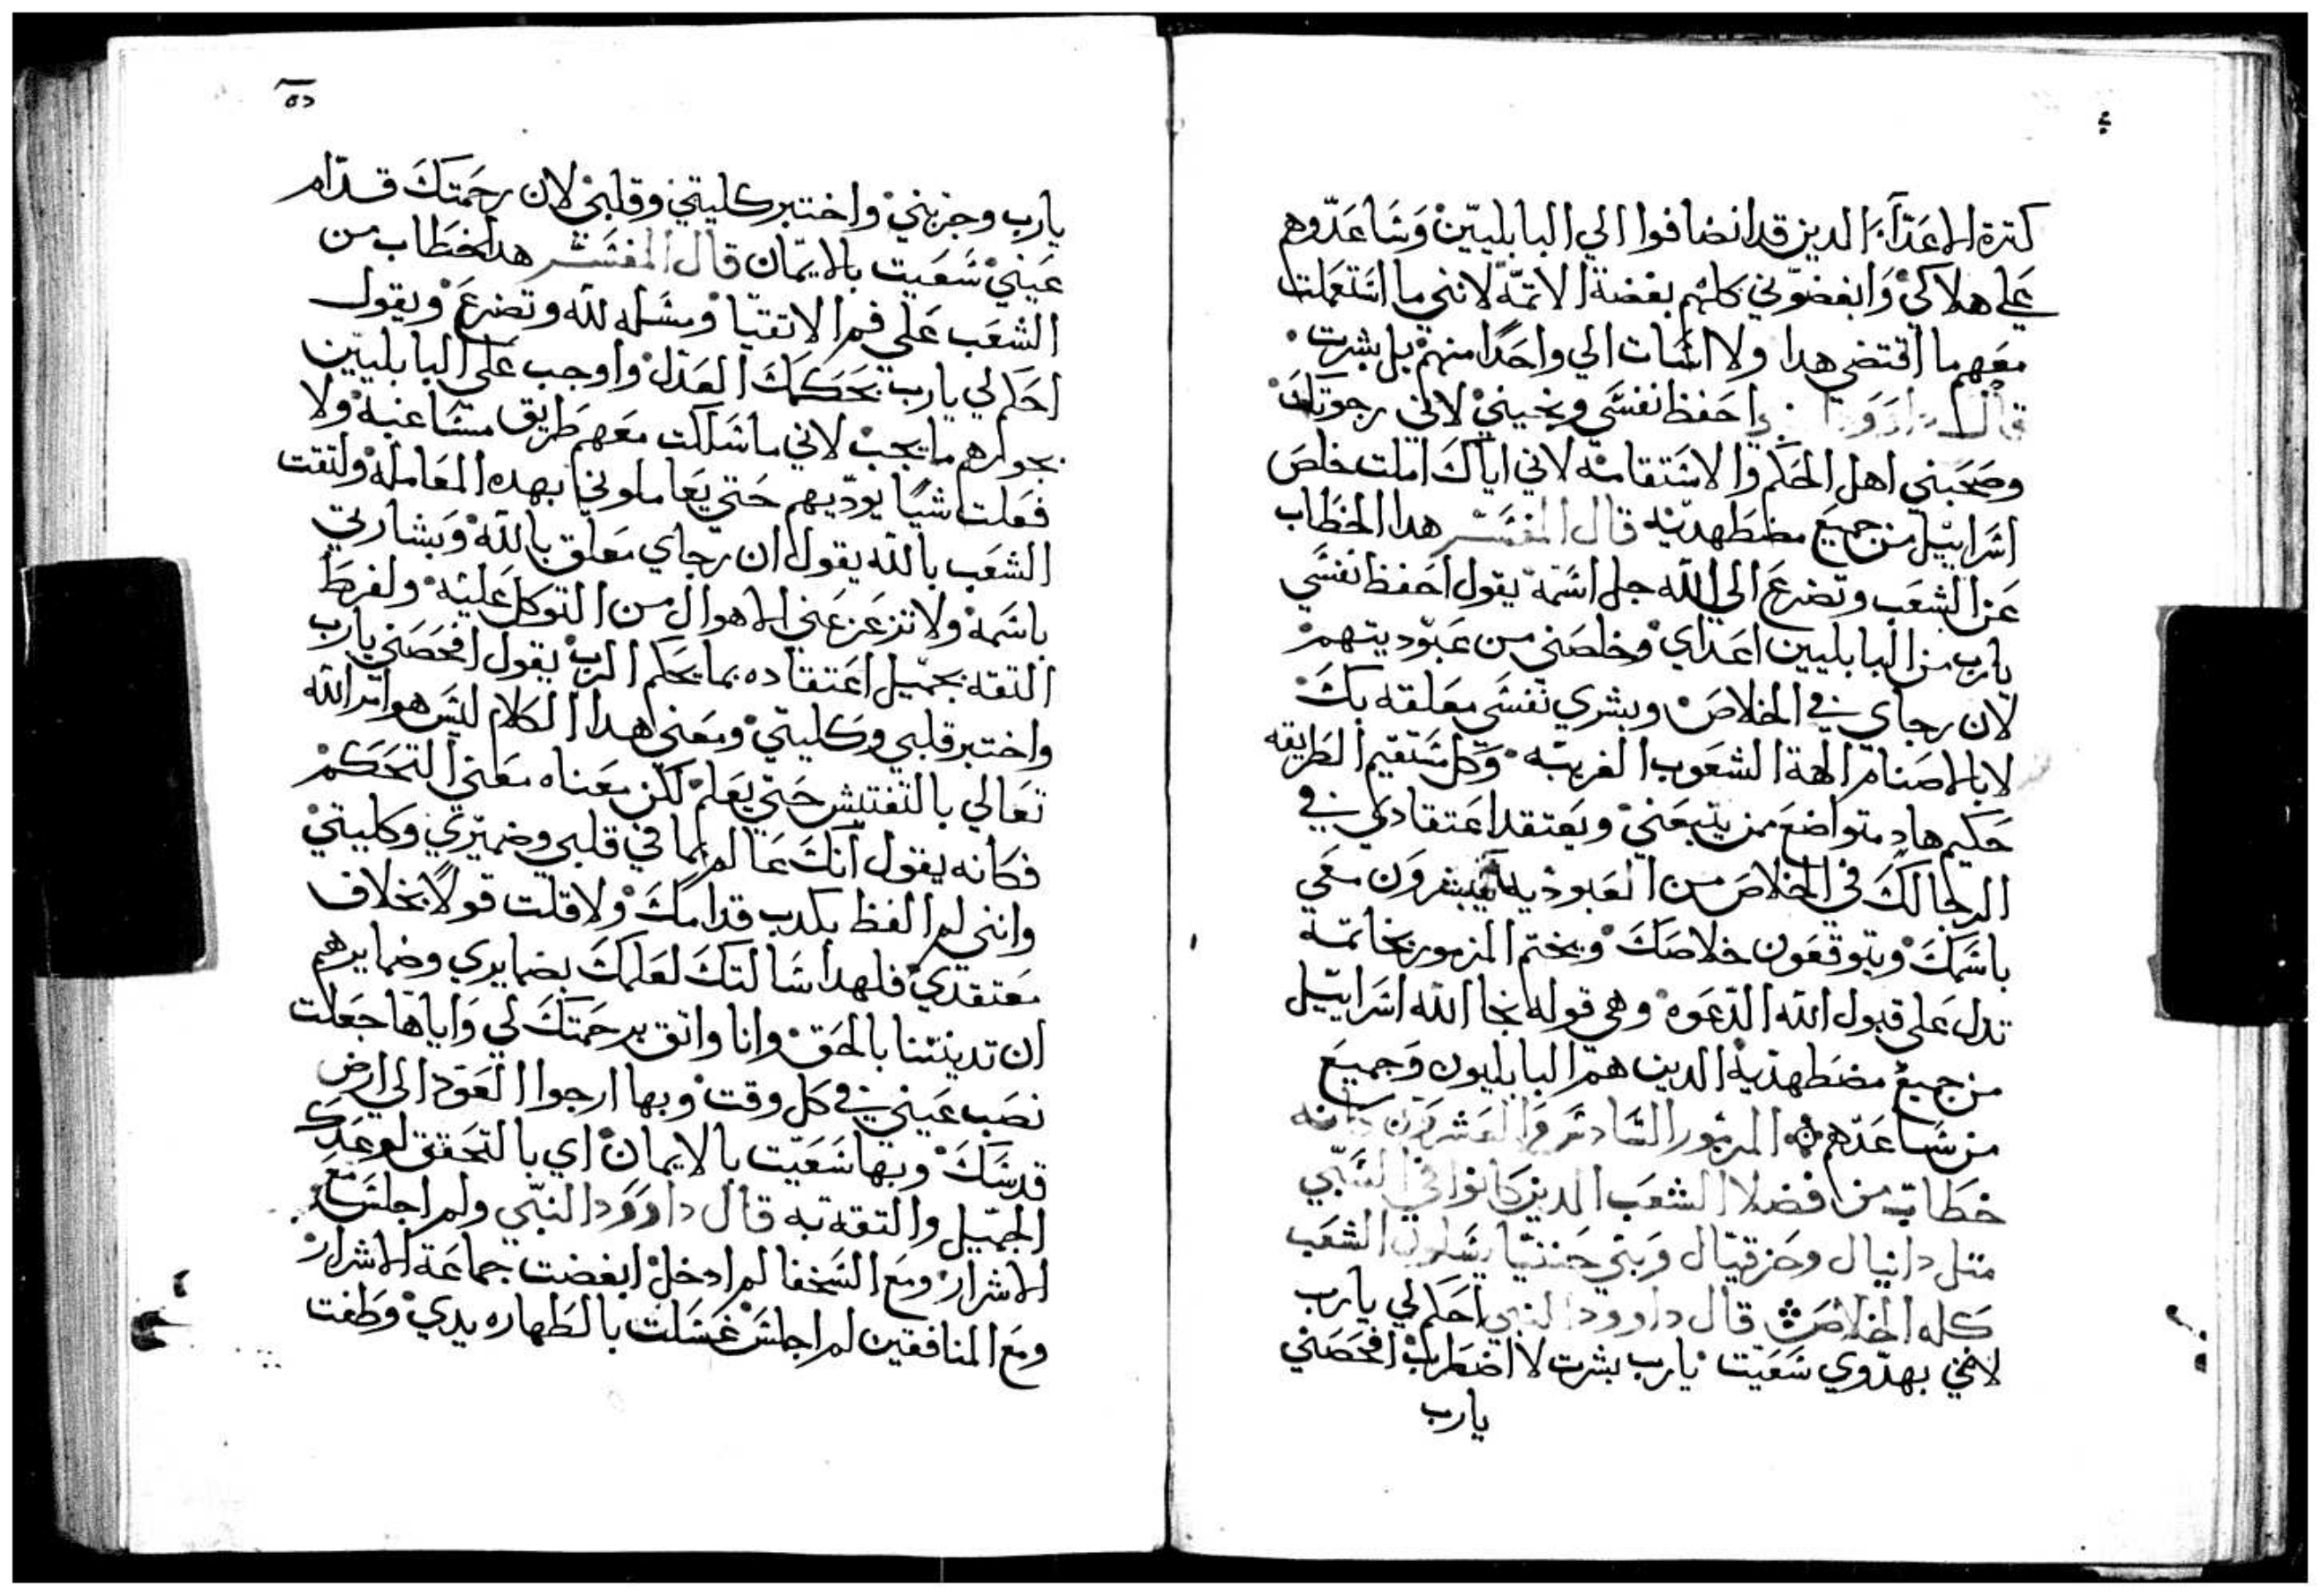 كترة الاعدآء الدين قد انضافوا الي البابليين وساعدوهم
علي هلاكي وابغضوني كلهم بغضة الاتمه لانني ما استعملت
معهم ما اقتضي هدا ولا اسات الي واحدًا منهم بل بشرت
قال داوود احفظ نفسي ونجيني لاني رجوتك
وصحبني اهل الحكم والاستقامه لاني اياك املت خلص
اسراييل من جميع مضطهديه قال المفسر هدا الخطاب
عن الشعب وتضرع الي الله جل اسمه يقول احفظ نفسي
يارب من البابليين اعداي وخلصني من عبوديتهم
لان رجاي في الخلاص وبشري نفسي معلقه بك
لا بالاصنام الهة الشعوب الغريبه وكل مستقيم الطريقه
حكيم هاد متواضع ممن يتبعني ويعتقد اعتقادي في
الرجا لك في الخلاص من العبوديه يبشرون معي
باسمك ويتوقعون خلاصك ويختم المزمور بخاتمه
تدل علي قبول الله الدعوه وهي قوله نجا الله اسراييل
من جميع مضطهديه الدين هم البابليون وجميع
من ساعدهم المزمور السادس والعشرون
خطاب من فضلا الشعب الدين كانوا في السبي
متل دانيال وحزقيال وبني حننيا يسلون الشعب
كله الخلاص قال داوود النبي احكم لي يارب
لانني بهدوي سعيت يارب بشرت لا اضطرب افحصني
يارب
٥٥
يارب وجربني واختبر كليتي وقلبي لان رحمتك قدام
عيني سعيت بالايمان قال المفسر هدا خطاب من
الشعب علي فم الاتقيا ومسله لله وتضرع ويقول
احكم لي يارب بحكمك العدل واوجب علي البابليين
بجورهم ما يجب لاني ما سلكت معهم طريق مشاغبه ولا
فعلت شيًا يوديهم حتي يعاملوني بهده المعامله ولتقت
الشعب بالله يقول ان رجاي معلق بالله وبشارتي
باسمه ولا تزعزعني الاهوال من التوكل عليه ولفرط
التقه بجميل اعتقاده بما يحكم الرب يقول افحصني يارب
واختبر قلبي وكليتي ومعني هدا الكلام ليس هو امر الله
تعالي بالتفتيش حتي يعلم لكن معناه معني التحكم
فكانه يقول انك عالم بما في قلبي وضميري وكليتي
وانني لم الفظ بكدب قدامك ولا قلت قولًا بخلاف
معتقدي فلهدا سالتك لعلمك بضمايري وضمايرهم
ان تديننا بالحق وانا واتق برحمتك لي واياها جعلت
نصب عيني في كل وقت وبها ارجوا العود الي ارض
قدسك وبها سعيت بالايمان اي بالتحقق لوعدك
الجميل والتقه به قال داوود النبي ولم اجلس مع
الاشرار ومع السخفا لم ادخل ابغضت جماعة الاشرار
ومع المنافقين لم اجلس غسلت بالطهاره يدي وطفت